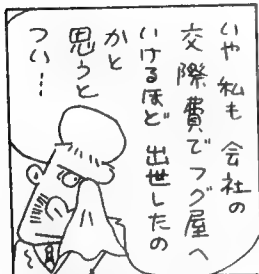 いや私も会社の
交際費でフグ屋へ
いけるほど出世したの
かと
思うと
つい…